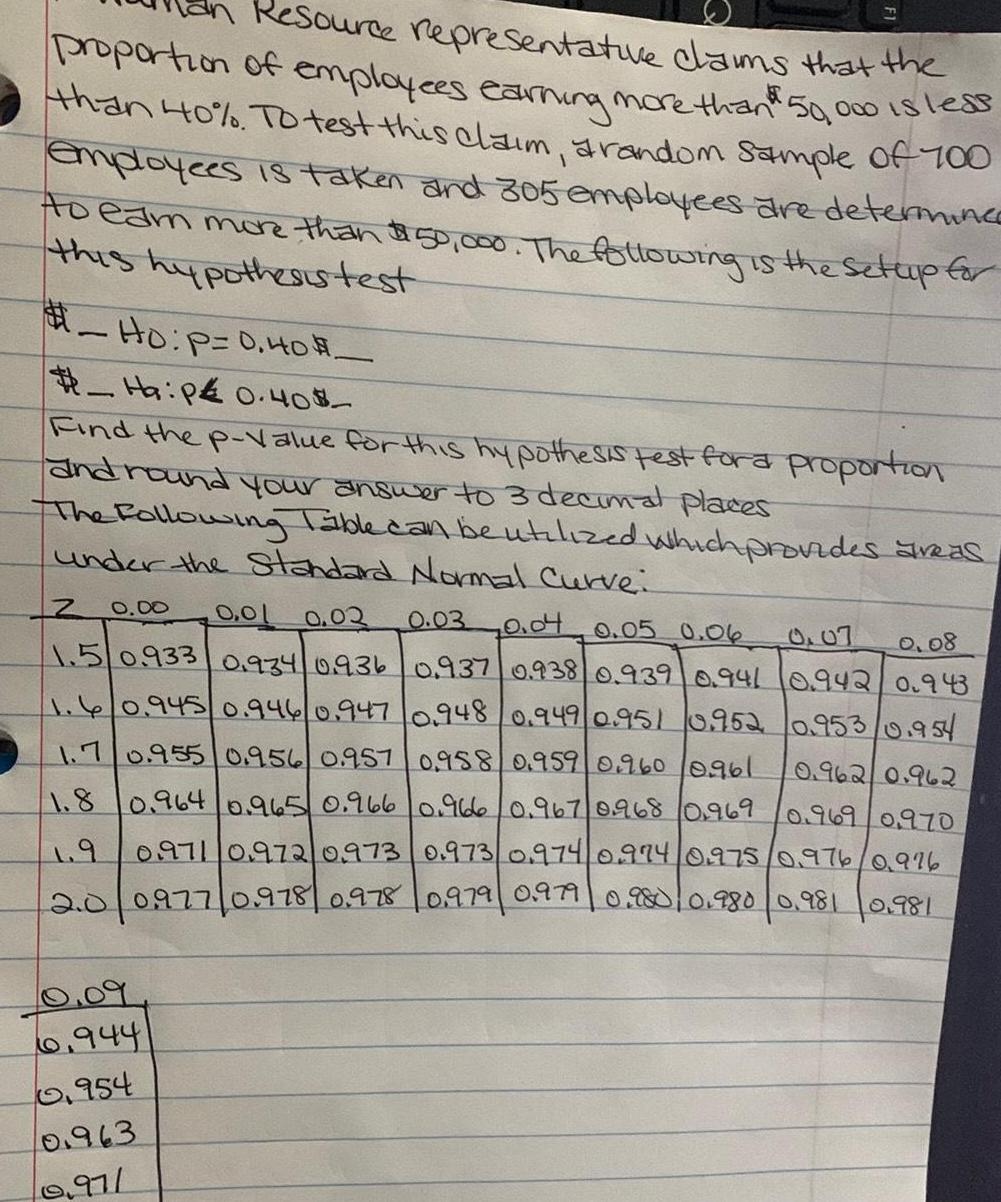 Human Resource representative claims that the
proportion of employees earning more than $50,000 is less
than 40%. To test this claim, a random sample of 700
employees is taken and 305 employees are determine
to earn more than $50,000. The following is the setup for
this hypothesis test
$_ HO: p=0.40$_
$_ Ha: p< 0.40$_
Find the p-value for this hypothesis test for a proportion
and round your answer to 3 decimal places
The Following Table can be utilized which provides areas
under the Standard Normal Curve:
Z 0.00 0.01 0.02 0.03 0.04 0.05 0.06 0.07 0.08
1.5 0.933 0.934 0.936 0.937 0.938 0.939 0.941 0.942 0.943
1.6 0.945 0.946 0.947 0.948 0.949 0.951 0.952 0.953 0.954
1.7 0.955 0.956 0.957 0.958 0.959 0.960 0.961 0.962 0.962
1.8 0.964 0.965 0.966 0.966 0.967 0.968 0.969 0.969 0.970
1.9 0.971 0.972 0.973 0.973 0.974 0.974 0.975 0.976 0.976
2.0 0.977 0.978 0.978 0.979 0.979 0.980 0.980 0.981 0.981
0.09
0.944
0.954
0.963
0.971
F1